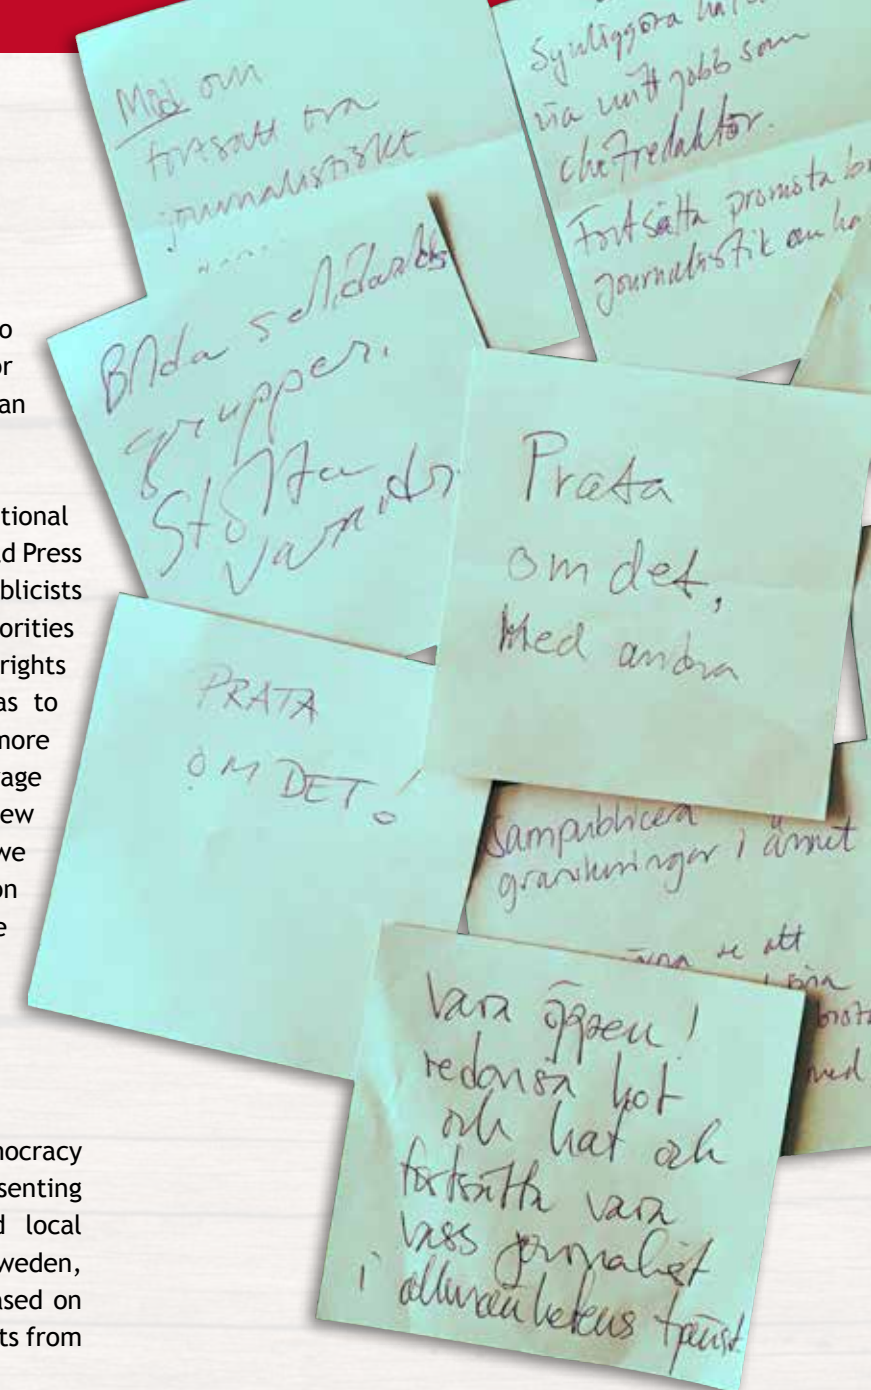 o
or
an
tional
d Press
blicists
orities
rights
as to
more
age
ew
we
on
e
mocracy
senting
d local
weden,
ased on
ts from
Med om
fortsätt bra
journalistiskt
Synliggöra
via mitt jobb som
chefredaktör.
Fortsätta promota
journalistik om
Bilda solidaritets
grupper.
Stötta
varandra
Prata
om det,
Med andra
PRATA
OM DET!
Sampublicera
granskningar i ämnet
att
med
Vara öppen!
redovisa hot
och hat och
fortsätta vara
vass journalist
i allmänhetens tjänst